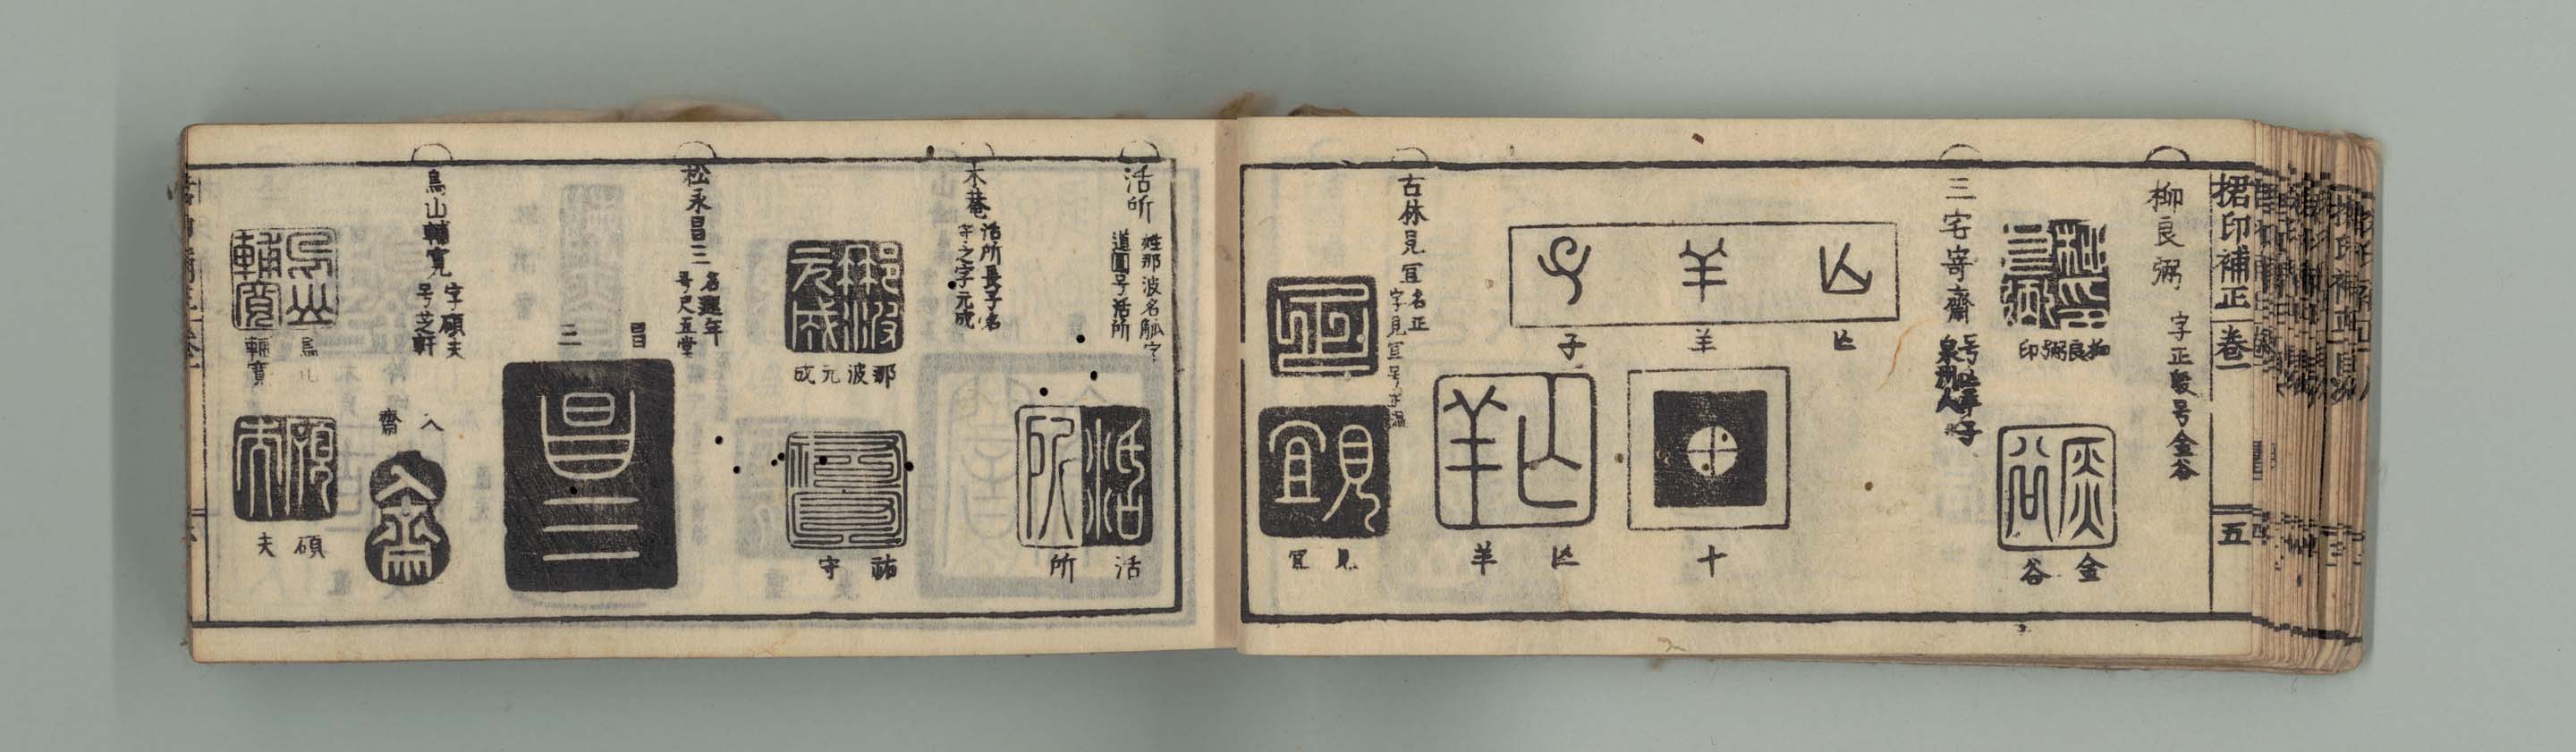 捃印補正
卷一
五
柳良弼
字正毅号金谷
柳良弼印
金谷
三宅寄齋
号亡羊子
泉州人
亡羊子
十
亡羊
古林見宜
名正
字見宜号
見宜
活所
姓那波名觚字
道圓号活所
活所
木菴
活所長子名
守之字元成
那波元成
祐守
松永昌三
名遐年
号尺五堂
昌三
鳥山輔寛
字碩夫
号芝軒
入齋
輔寛
碩夫